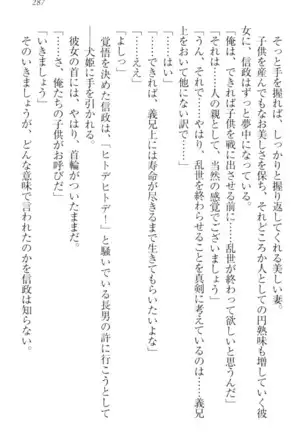 287
そっと手を握れば、しっかりと握り返してくれる美しい妻。
子供を産んでもなお美しさを保ち、それどころか人としての円熟味も増していく彼
女に、信政はずっと夢中になっている。
「俺は、できれば子供を戦に出させる前に……乱世が終わって欲しいと思うんだ」
「それは……人の親として、当然の感覚でございましょう」
「うん、それで……やはり、乱世を終わらせることを真剣に考えているのは……義兄
上をおいて他にない訳で……」
「はい」
「……できれば、義兄上には寿命が尽きるまで生きてもらいたいよな」
「……ええ」
「よしっ」
覚悟を決めた信政は、「ヒトデヒトデー」と騒いでいる長男の許に行こうとして
――犬姫に手を引かれる。
彼女の首には、やはり、首輪がついたままだ。
「……さ、俺たちの子供がお呼びだ」
「いきましょう」
そのいきましょうが、どんな意味で言われたのかを信政は知らない。